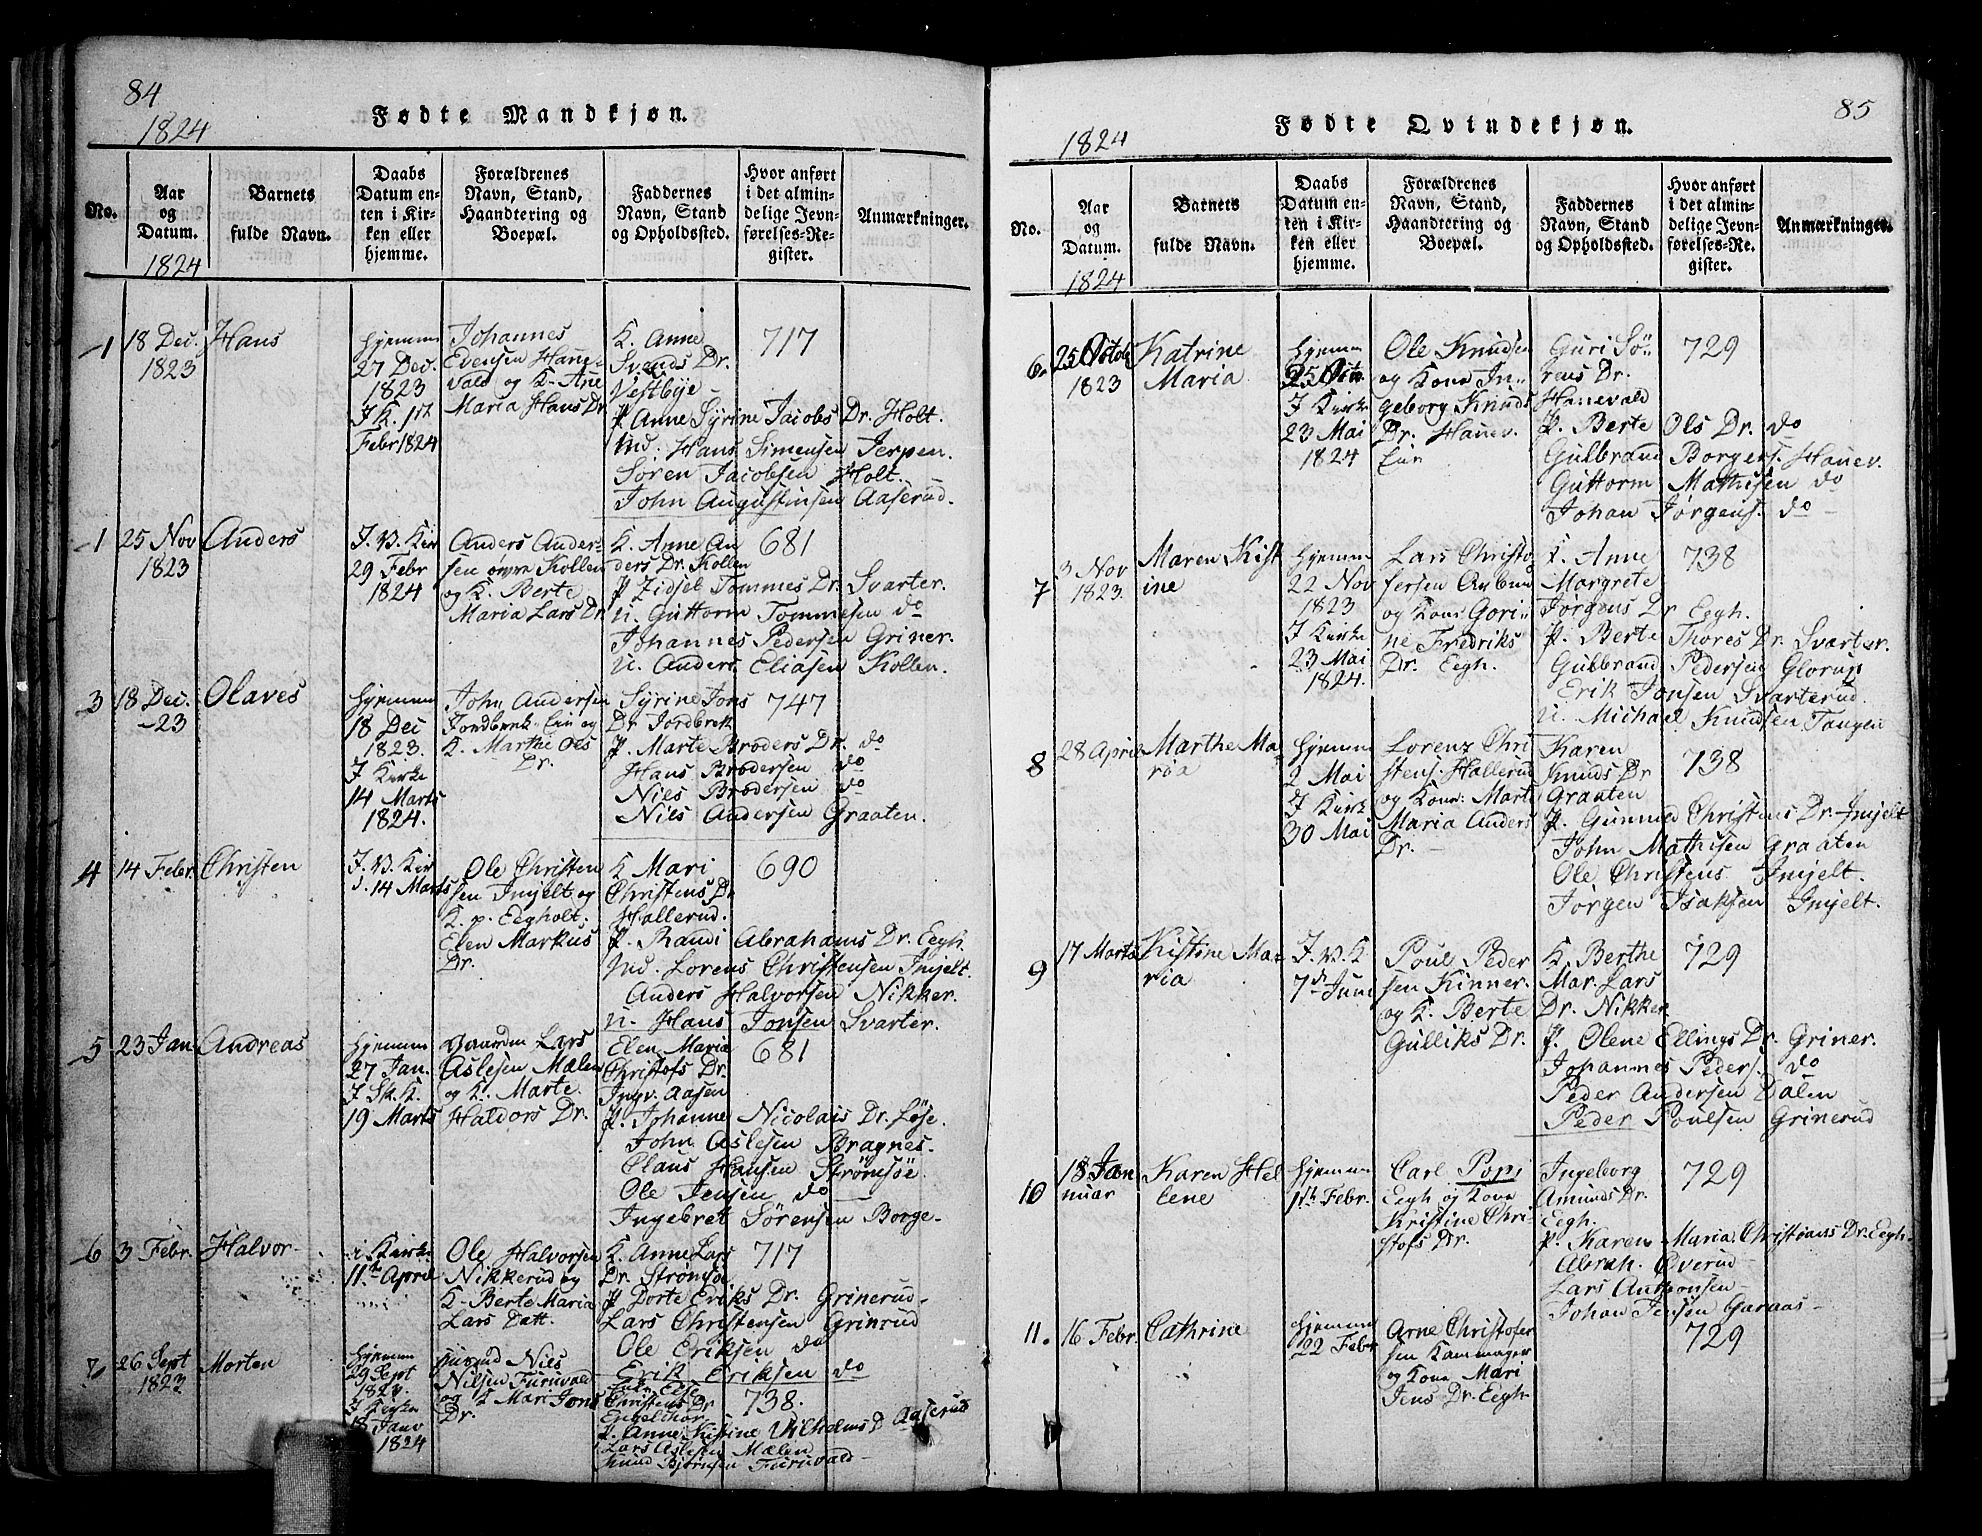 84
1824
Fødte Mandkjøn.
No.
Aar
og
Datum.
Barnets
fulde Navn.
Daabs
Datum en-
ten i Kir-
ken eller
hjemme.
Forældrenes
Navn, Stand,
Haandtering og
Boepæl.
Faddernes
Navn, Stand
og Opholdssted.
Hvor anført
i det almin-
delige Jevn-
førelses-Re-
gister.
Anmærkninger.
1824
1
18 Dec.
1823
Hans
hjemm
27 Dec.
1823
I K. 1st
Febr 1824
Johannes
Evensen Hane-
vald og K. Ane
Maria Hans Dr
K. Anne
Svends Dr.
Vestbye
P Anne Syrine Jacobs Dr. Holt.
Md. Hans Simensen Jerpen.
Søren Jacobsen Holt.
John Augustinsen Aaserud.
717
1
25 Nov
1823
Anders
I. V. Kir
29 Febr
1824
Anders Ander-
sen øvre Kollen
og K. Berte
Maria Lars Dr
K. Anne An
ders Dr. Kollen
P Zidsel Tommes Dr. Svarter.
U. Guttorm Tommesen do
Johannes Pedersen Griner.
U. Anders Eliasen Kollen.
681
3
18 Dec.
-23
Olaves
hjemmen
18 Dec
1823.
I Kirke
14 Marts
1824.
John Andersen
Jordbrek Eier og
K. Marthe Ols
Dr.
Syrine Jons
Dr Jordbrek
P. Marte Broders Dr. do
Hans Brodersen do
Niels Brodersen do
Niels Andersen Graaten.
747
4
14 Febr.
Christen
I. V. Kir
d. 14 Marts
Ole Christen
sen Imjelt og
K. p. Eegholt.
Elen Markus
Dr.
K Mari
Christens Dr
Hallerud.
P. Randi Abrahams Dr. Eegh.
Md. Lorens Christensen Imjelt.
Anders Halvorsen Nikker.
U. Hans Jonsen Svarter.
690
5
23 Jan
Andreas
hjemmen
27 Jan.
I Sk. K.
19 Marts
Gaardm Lars
Aslesen Mælen
og K. Marte
Haldors Dr.
Elen Maria
Christofs Dr.
Ingv. Aasen
P. Johanne Nicolais Dr. Løse.
John Aslesen Bragnes.
Claus Hansen Strømsøe.
Ole Jensen do
Ingebret Sørensen Borge-
681
6
3 Febr.
Halvor
i Kirke
11te April
Ole Halvorsen
Nikkerud og
K- Berte Maria
Lars Datt.
K. Anne Lars
Dr. Strømsøe
P Dorte Eriks Dr. Grinerud-
Lars Christensen Grinrud
Ole Eriksen do
Erik Eriksen do
717
7
26 Sept
1823
Morten
hjemm
29 Sept
1823.
I Kirken
18 Janv
1824
Niels
Nilsen Furuvald
og K Mari Jons
Dr.
Else
Christens Dr
P. Anne Kistine Vilhelms D Aaserud
Lars Aslesen Mælen
Knud Bjørnsen Furuvald-
738.
85
1824
Fødte Qvindekjøn.
No.
Aar
og
Datum.
Barnets
fulde Navn.
Daabs
Datum en-
ten i Kir-
ken eller
hjemme.
Forældrenes
Navn, Stand,
Haandtering og
Boepæl.
Faddernes
Navn, Stand
og Opholdssted.
Hvor anført
i det almin-
delige Jevn-
førelses-Re-
gister.
Anmærkninger.
1824
6.
25 Octob
1823
Katrine
Maria
hjemm
25 Octo
I Kirke
23 Mai
1824
Ole Knudsen
og Kone In-
geborg Knuds
Dr. Hanev.
Eier
Guri Sø-
rens Dr.
Hanevald
P. Berte Ols Dr. do
Gulbrand Borgers. Hanev.
Guttorm Mathisen do
Johan Jørgens. do
729
7
3 Nov
1823.
Maren Kist
ine
hjemm
22 Nov
1823
I Kirke
23 Mai
1824.
Lars Christo
fersen
og Kone Gori-
ne Fredriks
Dr. Eegh.
K. Anne
Margrete
Jørgens Dr Eegh.
P. Berte Thores Dr. Svarter.
Gulbrand Pedersen Glorup
Erik Jonsen Svarterud.
U. Michael Knudsen Tangen
738
8
28 April
Marthe Ma
røa
hjemm
2 Mai
I Kirk
30 Mai
Lorenz Chri
stens. Hallerud
og Kone: Marte
Maria Anders
Dr.
Karen
Knuds Dr
Graaten
P. Gunmed Christens Dr. Imjelt
John Mathisen Graaten
Ole Christens Imjelt.
Jørgen Isaksen Imjelt.
738
9
17 Marts
Kistine Ma
ria
I. V. K
7de Juni
Poul Peder
sen Kinner.
og K. Berte
Gulliks Dr.
K. Berthe
Mar. Lars
Dr. Nikker
P. Olene Ellings Dr. Griner.
Johannes Peders. do
Peder Andersen Dalen
Peder Poulsen Grinerud
729
10
18 Jan
nuar
Karen Hel
lene
hjemm
1ste Febr.
Carl Popi
Eegh og Kone
Kristine Chri-
stofs Dr.
Ingeborg
Amunds Dr.
Eegh.
P. Karen Maria Christians Dr. Eegh.
Abrah. Øverud-
Lars Anthonsen-
Johan Jensen Garaas-
729
11.
16 Febr.
Cathrine
hjemm
22 Febr
Arne Christofer
sen Kammager
og Kone Mari
Jens Dr. Eegh.
729